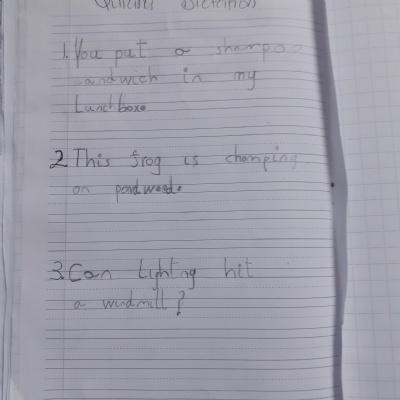 Dictation
1. You put a shampoo
sandwich in my
Lunchbox.
2 This frog is chomping
on pondweed.
3. Can lighting hit
a windmill?